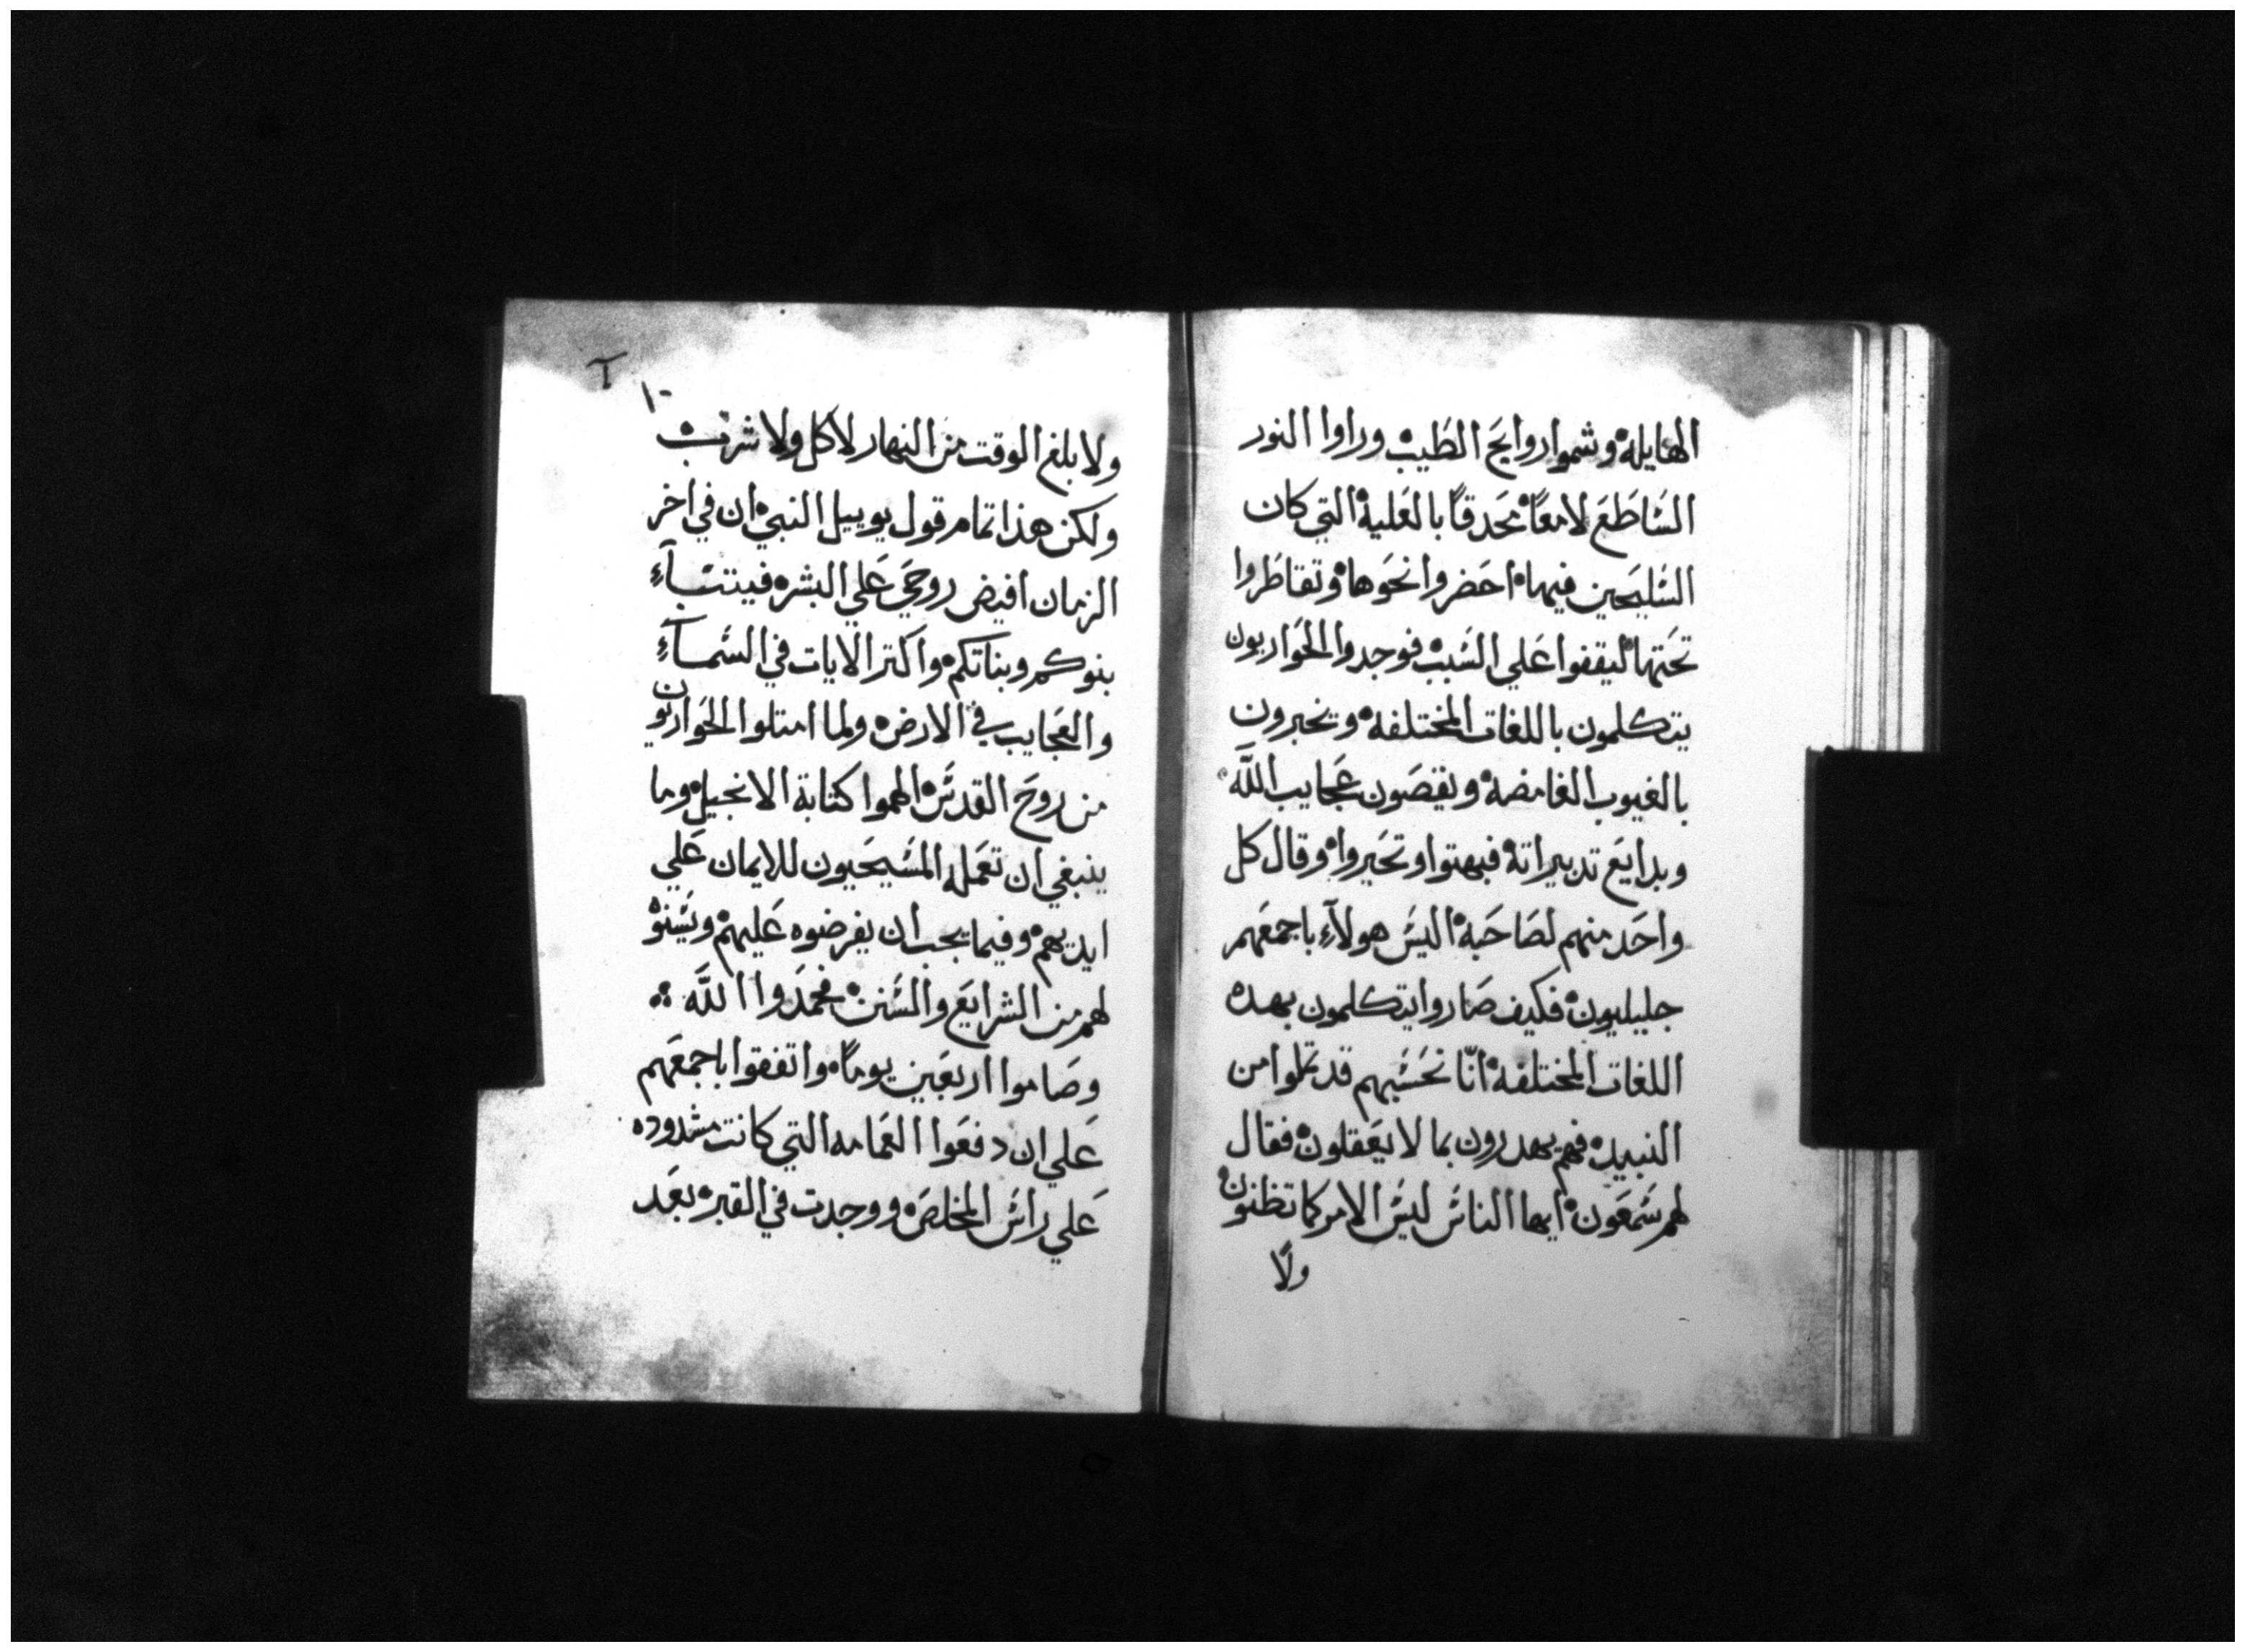 الهايله وشموا روايح الطيب وراوا النور
الساطع لامعًا محدقًا بالعليه التي كان
السليحين فيها احضروا نحوها وتقاطروا
تحتها ليقفوا علي السبب فوجدوا الحواريون
يتكلمون باللغات المختلفه وتخبرون
بالغيوب الغامضه ويقصون عجايب الله
وبدايع تدبيراته فبهتوا وتحيروا وقال كل
واحد منهم لصاحبه اليس هولآء باجمعهم
جليليون فكيف صاروا يتكلمون بهده
اللغات المختلفه انّا نحسبهم قد تملوا من
النبيد فهم يهدرون بما لا يعقلون فقال
لهم سمعون ايها الناس ليس الامر كما تظنون
ولا
١٠
ولا بلغ الوقت من النهار لاكل ولا شرب
ولكن هذا تمام قول يوييل النبي ان في اخر
الزمان افيض روحي علي البشر فيتنبآء
بنوكم وبناتكم واكتر الايات في السمآء
والعجايب في الارض ولما امتلوا الحواريون
من روح القدس الهموا كتابة الانجيل وما
ينبغي ان تعمله المسيحيون للايمان علي
ايديهم وفيما يجب ان يفرضوه عليهم ويسنوه
لهم من الشرايع والسنن فحمدوا الله
وصاموا اربعين يومًا واتفقوا باجمعهم
علي ان دفعوا العمامه التي كانت مشدوده
علي راس المخلص ووجدت في القبر بعد